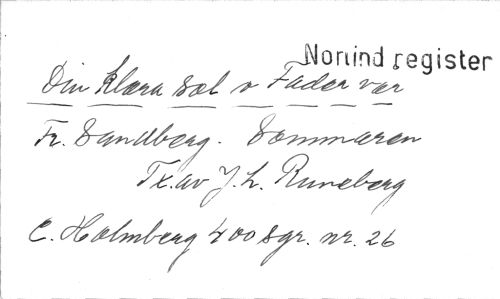 Norrind register
Din klara sol o Fader vår
Fr. Sandberg. Sommaren
Tx. av J. L. Runeberg
C. Holmberg 400 sgr. nr. 26